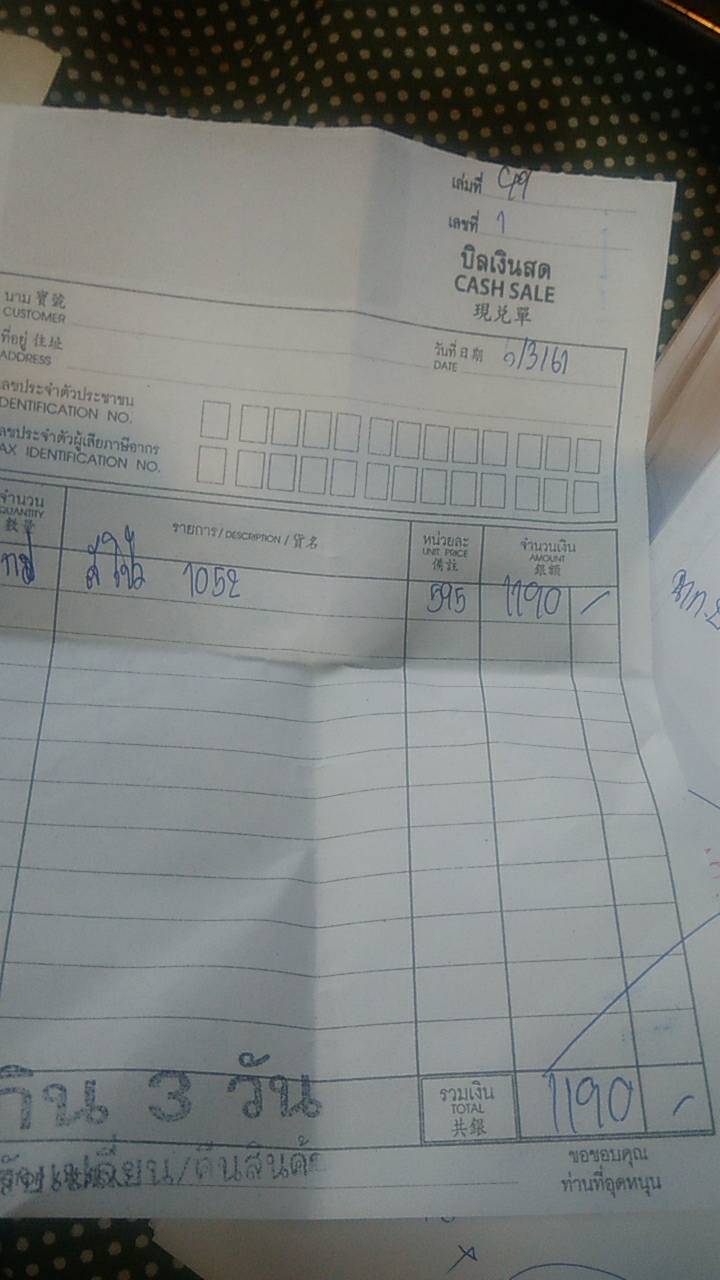 เล่มที่
เลขที่ 1
บิลเงินสด
CASH SALE
現兌單
นาม 寶號
CUSTOMER
ที่อยู่ 住址
ADDRESS
วันที่ 日期
DATE
/3/61
เลขประจำตัวประชาชน
IDENTIFICATION NO.
เลขประจำตัวผู้เสียภาษีอากร
AX IDENTIFICATION NO.
จำนวน
QUANTITY
數量
รายการ/DESCRIPTION/貨名
หน่วยละ
UNIT PRICE
備註
จำนวนเงิน
AMOUNT
銀額
1052 595 1190 -
กิน 3 วัน
รับเปลี่ยน/คืนสินค้า
รวมเงิน
TOTAL
共銀
1190 -
ขอขอบคุณ
ท่านที่อุดหนุน